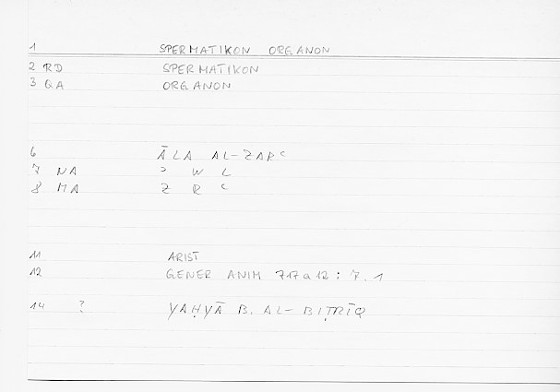 1 SPERMATIKON ORGANON
2 RD SPERMATIKON
3 QA ORGANON
6 ĀLA AL-ZARʿ
7 NA ʾ W L
8 MA Z R ʿ
11 ARIST
12 GENER ANIM 717a12 : 7.1
14 ? YAḤYĀ B. AL-BIṬRĪQ